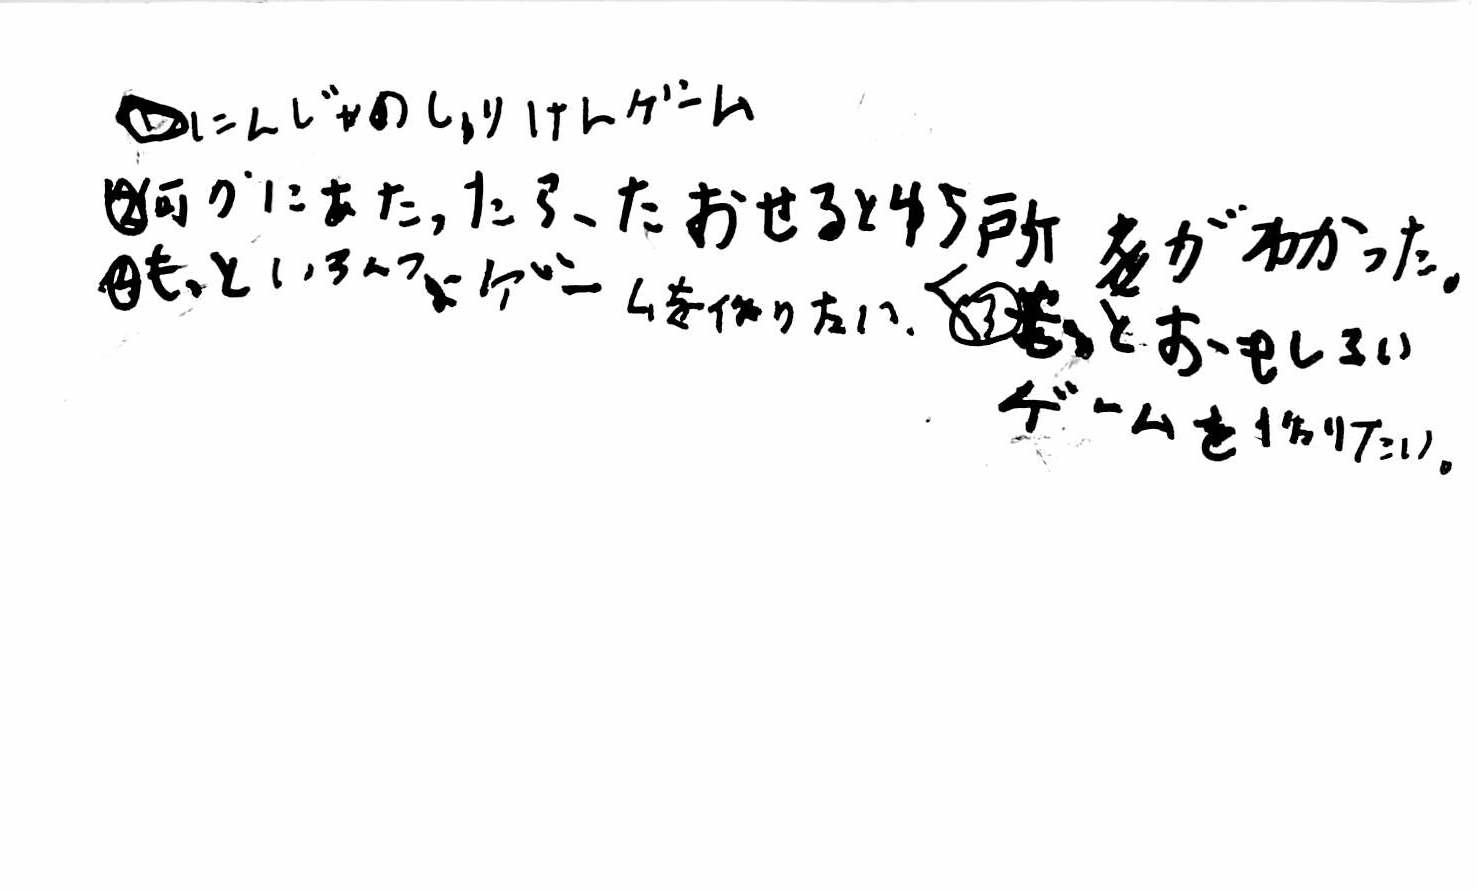 ①にんじゃのしゅりけんゲーム
②何かにあたったら、たおせるとゆう所 がわかった。
④もっといろんなゲームを作りたい。
③もっとおもしろい
ゲームを作りたい。